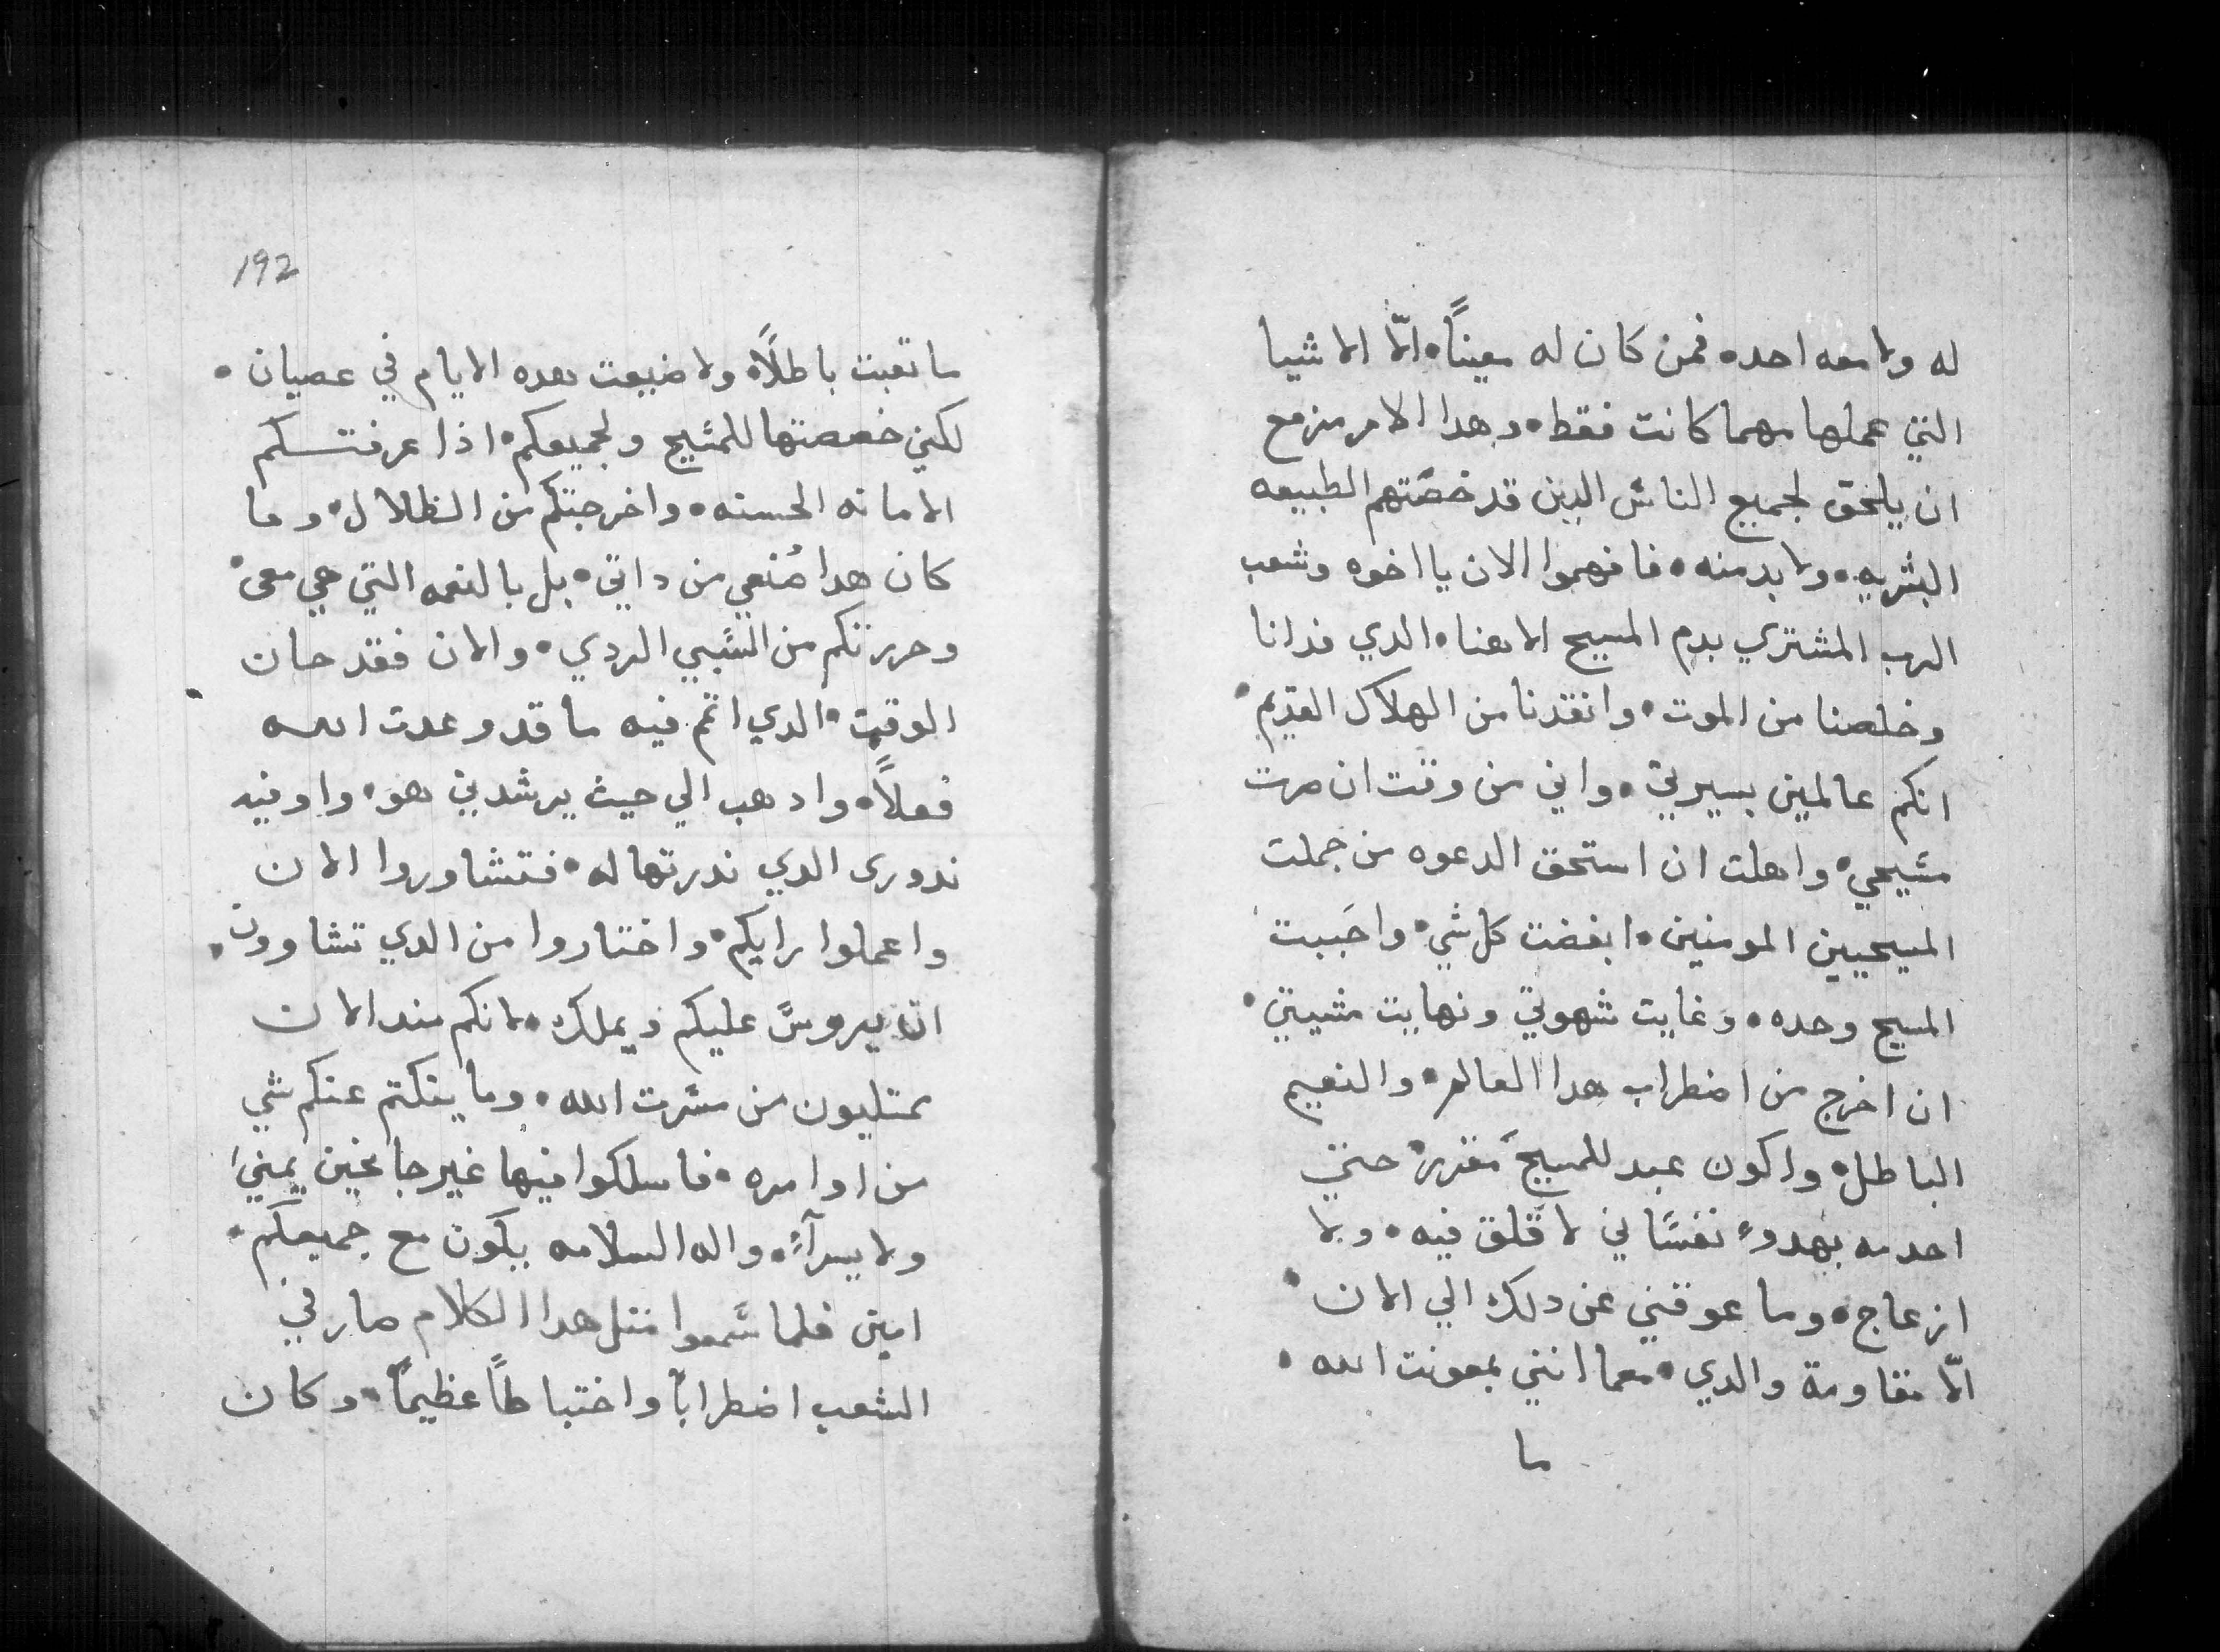 له ولا معه احد• فمن كان له معيناً• الّا الاشيا
التي عملها مهما كانت فقط• وهدا الامر مزمع
ان يلحق لجميع الناس الدين قد خصّتهم الطبيعه
البشريه• ولا بد منه• فافهموا الان يا اخوه وشعب
الرب المشتري بدم المسيح الاهنا• الدي فدانا
وخلصنا من الموت• وانقدنا من الهلاك القديم•
انكم عالمين بسيرتي• واني من وقت ان صرت
مسيحي• واهلت ان استحق الدعوه من جملت
المسيحيين المومنين• ابغضت كل شي• واحَببت
المسيح وحده• وغايت شهوتي ونهايت مشيتي•
ان اخرج من اضطراب هدا العالم• والنعيم
الباطل• واكون عبد للمسيح مقرر• حتي
اخدمه بهدوءٍ نفسَاني لا قَلق فيه• وبلا
ازعاج• وما عوقني عن دلك الي الان•
الّا مقاومة والدي• معما انني بمعونت الله•
ما
192
ما تعبت باطلاً• ولا ضيعت هده الايام في عصيان•
لكني خصصتها للمسيح ولجميعكم• اذا عرفتكم
الامانه الحسنه• واخرجتكم من الظلال• وما
كان هدا صُنعي من داتي• بل بالنعمه التي هي معي•
وحررتكم من السَبي الردي• والان فقد حان
الوقت• الدي اتمم فيه ما قد وعدت الله
فعلاً• وادهب الي حيث يرشدني هو• واوفيه
ندوري الدي ندرتها له• فتشاوروا الان
واعملوا رايكم• واختاروا من الدي تشاوون•
ان يروسّ عليكم ويملك• لانكم مند الان
ممتليون من مسَرت الله• وما ينكتم عنكم شي
من اوامره• فاسلكوا فيها غير جانحين يميني
ولا يسرآءً• واله السلامه يكون مع جميعكم•
امين فلما سَمعوا متل هدا الكلام صار في
الشعب اضطراباً واختباطاً عظيماً• وكان